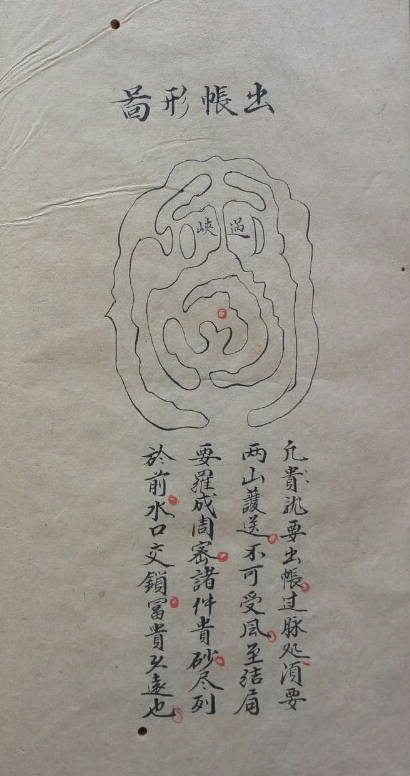 出帳形啚
過峽
凡貴龙要出帳过脉处須要
两山護送不可受風至结局
要羅成周密諸件貴砂尽列
於前水口交鎖冨貴久遠也